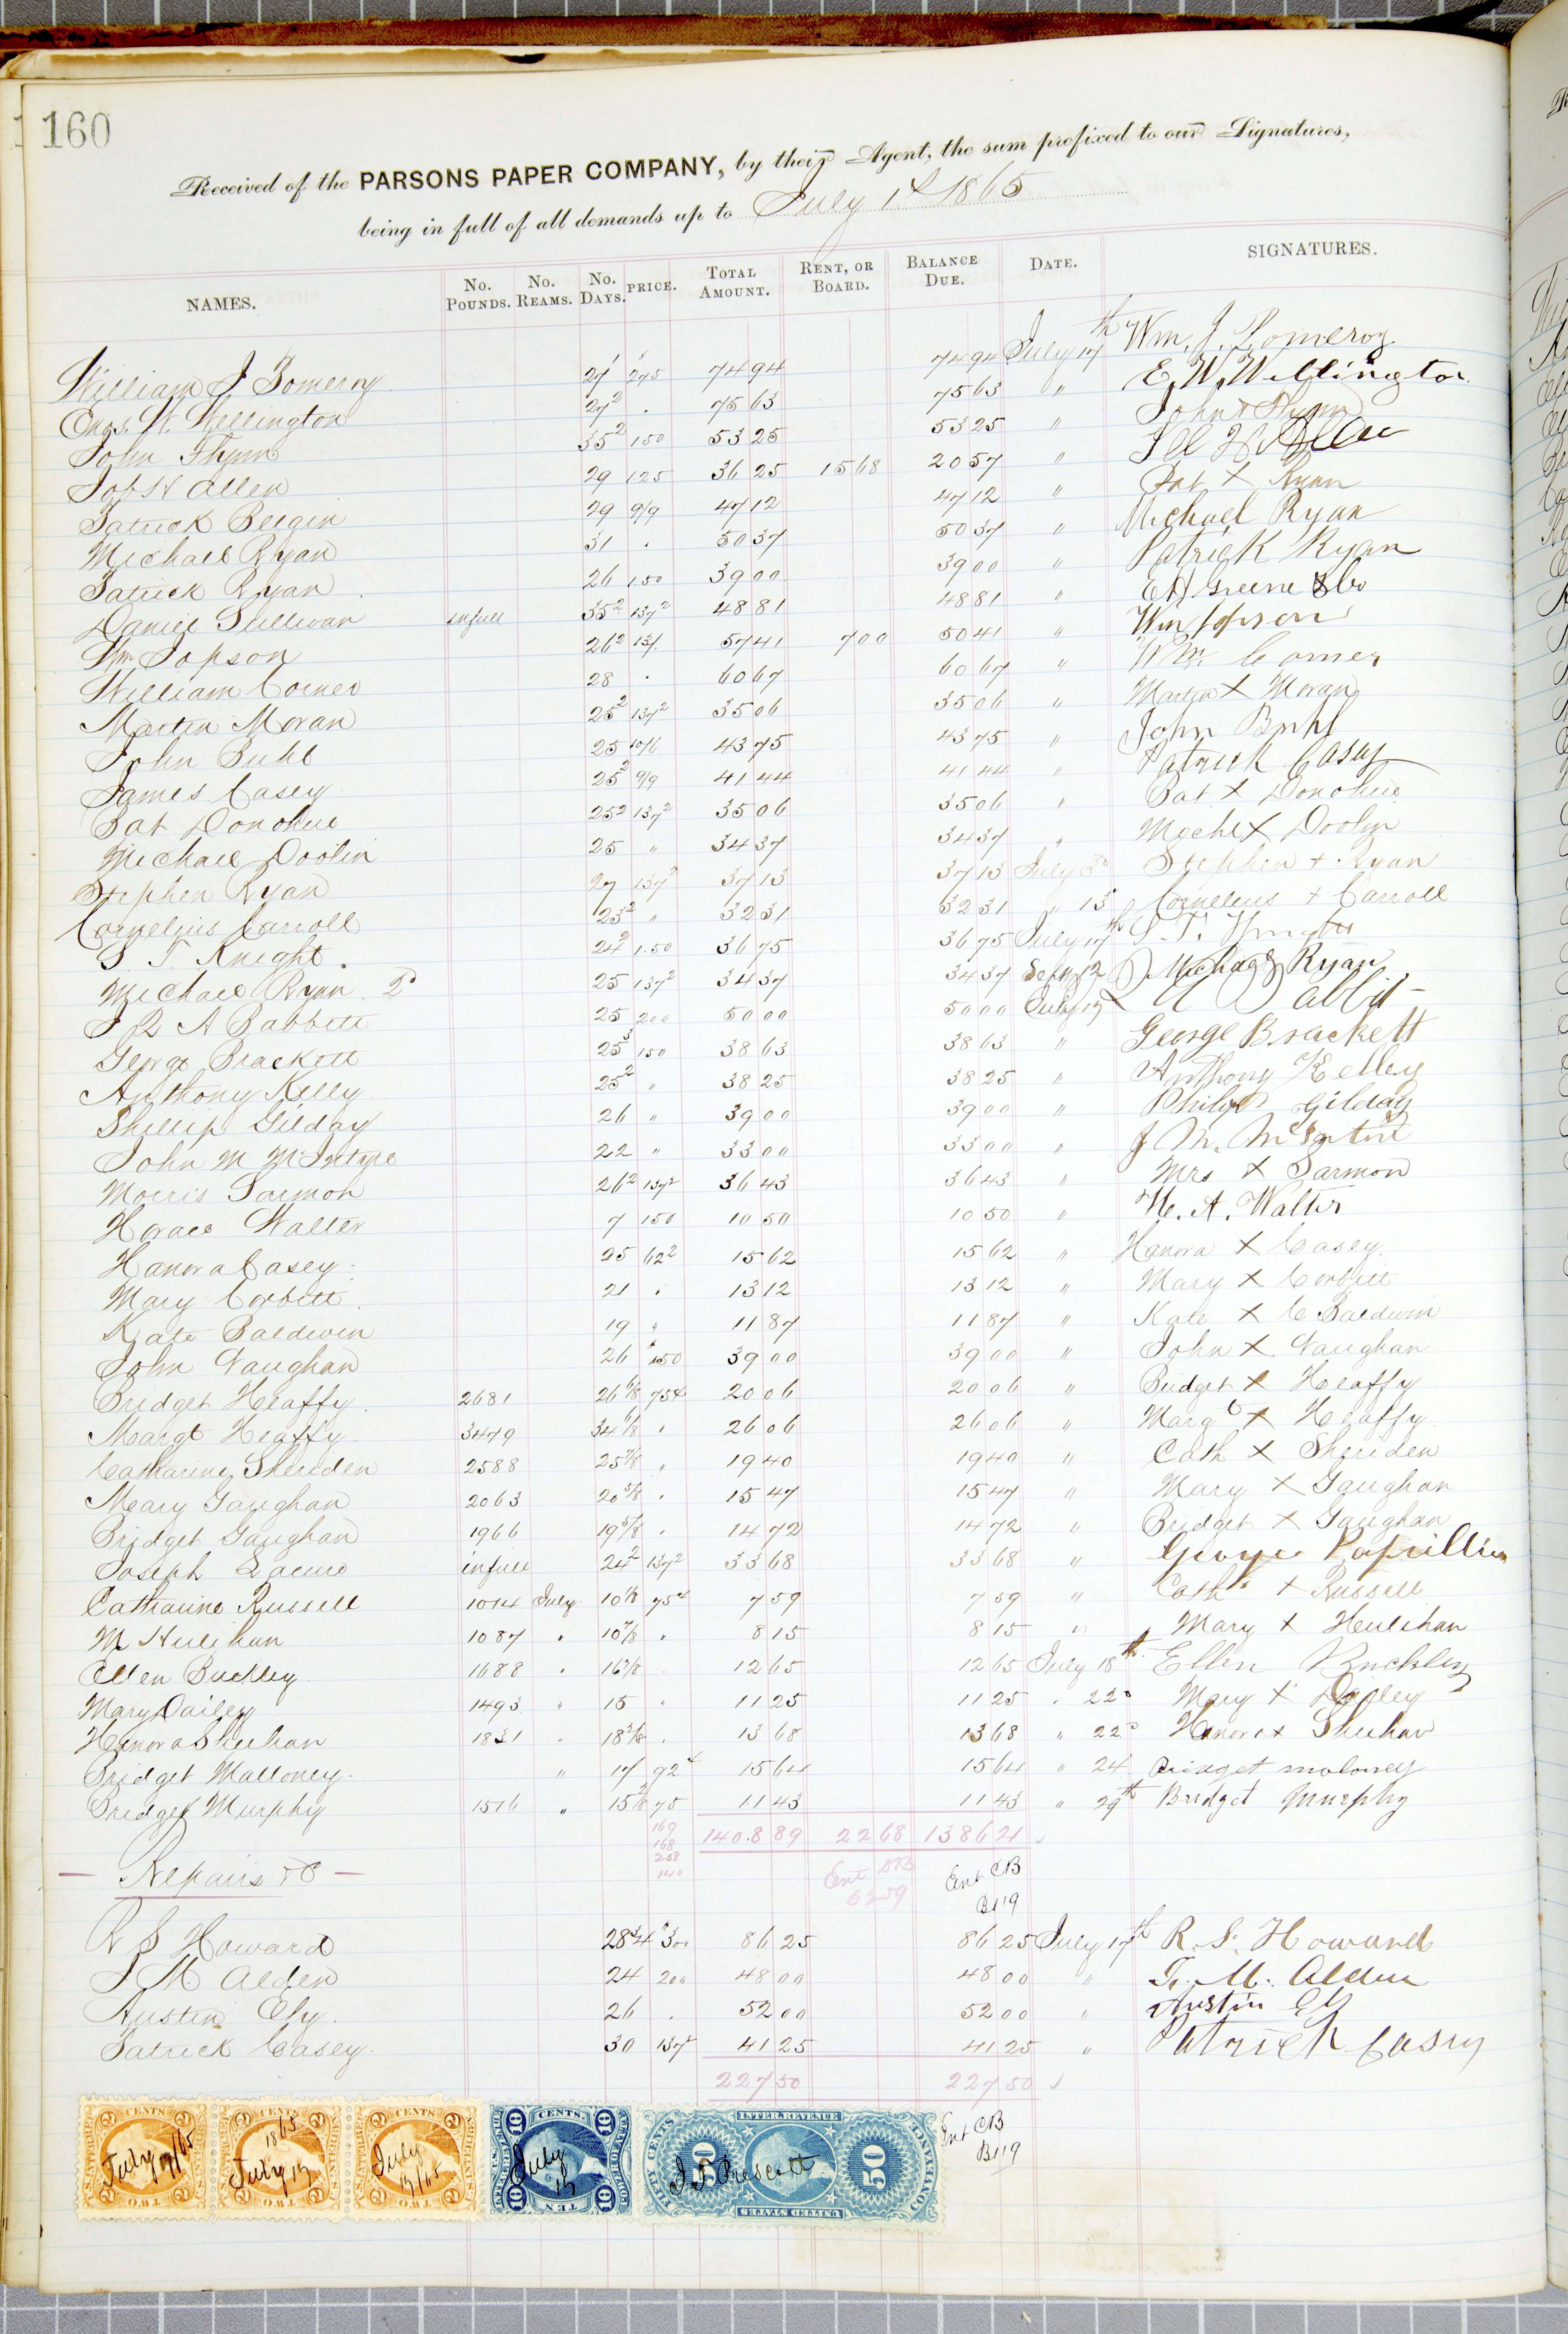 160
Received of the PARSONS PAPER COMPANY, by their Agent, the sum prefixed to our Signatures,
being in full of all demands up to July 1st 1865
NAMES. No. Pounds. No. Reams. No. Days. PRICE. Total Amount. Rent, or Board. Balance Due. Date. SIGNATURES.
William J Pomeroy 27 275 74 94 74 94 July 17th Wm. J. Pomeroy
W. Wellington 27 2 . 75 63 75 63 " E. W. Wellington
John Flynn 35 2 150 53 25 53 25 " John X Flynn
Job H Allen 29 125 36 25 15 68 20 57 "
Patrick Bergin 29 9/9 47 12 47 12 " Pat X Ryan
Michael Ryan 31 . 50 37 50 37 " Michael Ryan
Patrick Ryan 26 150 39 00 39 00 " Patrick Ryan
Daniel Sullivan infull 35 2 137 2 48 81 48 81 " E H Greene & Co
Wm Jopson 26 2 13/. 57 41 7 00 50 41 " Wm Jopson
William Corner 28 . 60 67 60 67 " Wm. Corner
Martin Moran 25 2 137 2 35 06 35 06 " Martin X Moran
John Buhl 25 10/6 43 75 43 75 " John Buhl
James Casey 25 2 9/9 41 44 41 44 " Patrick Casey
Pat Donohue 25 2 137 2 35 06 35 06 " Pat X Donohue
Michael Doolin 25 " 34 37 34 37 " Michl X Doolin
Stephen Ryan 27 137 2 37 13 37 13 July Stephen + Ryan
Cornelius Carroll 23 2 " 32 31 32 31 " 15 Cornelius + Carroll
S. T. Knight. 24 2 1.50 36 75 36 75 July 17th S. T. Knight
Michael Ryan 2d 25 137 2 34 37 34 37 Sept 12 Michael Ryan
J Q A Babbitt 25 200 50 00 50 00 July 17
George Brackett 25 3 150 38 63 38 63 " George Brackett
Anthony Kelly 25 2 " 38 25 38 25 " Anthony Kelley
Phillip Gilday 26 " 39 00 39 00 " Philip Gilday
John M McIntyre 22 " 33 00 33 00 " J. M. McIntire
Morris Sarmon 26 2 137 2 36 43 36 43 " Mrs X Sarmon
Horace Walter 7 150 10 50 10 50 " H. A. Walter
Hanora Casey 25 62 2 15 62 15 62 " Hanora X Casey
Mary Corbett 21 . 13 12 13 12 " Mary X Corbett
Kate Baldwin 19 " 11 87 11 87 " Kate X C Baldwin
John Vaughan 26 150 39 00 39 00 " John X Vaughan
Bridget Heaffy 2681 26 6/8 75 4 20 06 20 06 " Bridget X Heaffy
Margt Heaffy 3479 34 6/8 . 26 06 26 06 " Margt X Heaffy
Catharine Sheriden 2588 25 7/8 " 19 40 19 40 " Cath X Sheriden
Mary Gaughan 2063 20 5/8 . 15 47 15 47 " Mary X Gaughan
Bridget Gaughan 1966 19 5/8 . 14 72 14 72 " Bridget X Gaughan
Joseph infull 24 2 137 2 33 68 33 68 "
Catharine Russell 1014 July 10 1/8 75 4 7 59 7 59 " Cath X Russell
M Hulihan 1087 " 10 7/8 . 8 15 8 15 " Mary X Heulihan
Ellen Buckley 1688 . 16 7/8 . 12 65 12 65 July 18th Ellen Buckley
Mary Dailey 1493 " 15 . 11 25 11 25 . 22d Mary X Dailey
Hanora Sheehan 1831 . 18 2/8 . 13 68 13 68 " 22d Hanora X Sheehan
Bridget Malloney " 17 92 4 15 64 15 64 " 24 Bridget moloney
Bridget Murphy 1516 " 15 2/8 75 11 43 11 43 " 29th Bridget Murphy
169
168
208
140
1408 89 22 68 1386 21
Repairs &c
Ent
6259
Ent CB
B119
R S Howard 28 3/4 300 86 25 86 25 July 17th R. S. Howard
J M Alden 24 200 48 00 48 00 " J. M. Alden
Austin Ely 26 . 52 00 52 00 " Austin Ely
Patrick Casey 30 137 41 25 41 25 " Patrick Casey
227 50 227 50
Ent CB
B119
TWO CENTS
July 17/65
TWO CENTS
1865
July 17
TWO CENTS
July 17/65
10 CENTS. 10
TEN
July 17
INTER. REVENUE
FIFTY CENTS
50 50
CONVEYANCE
UNITED STATES
J. T. Prescott